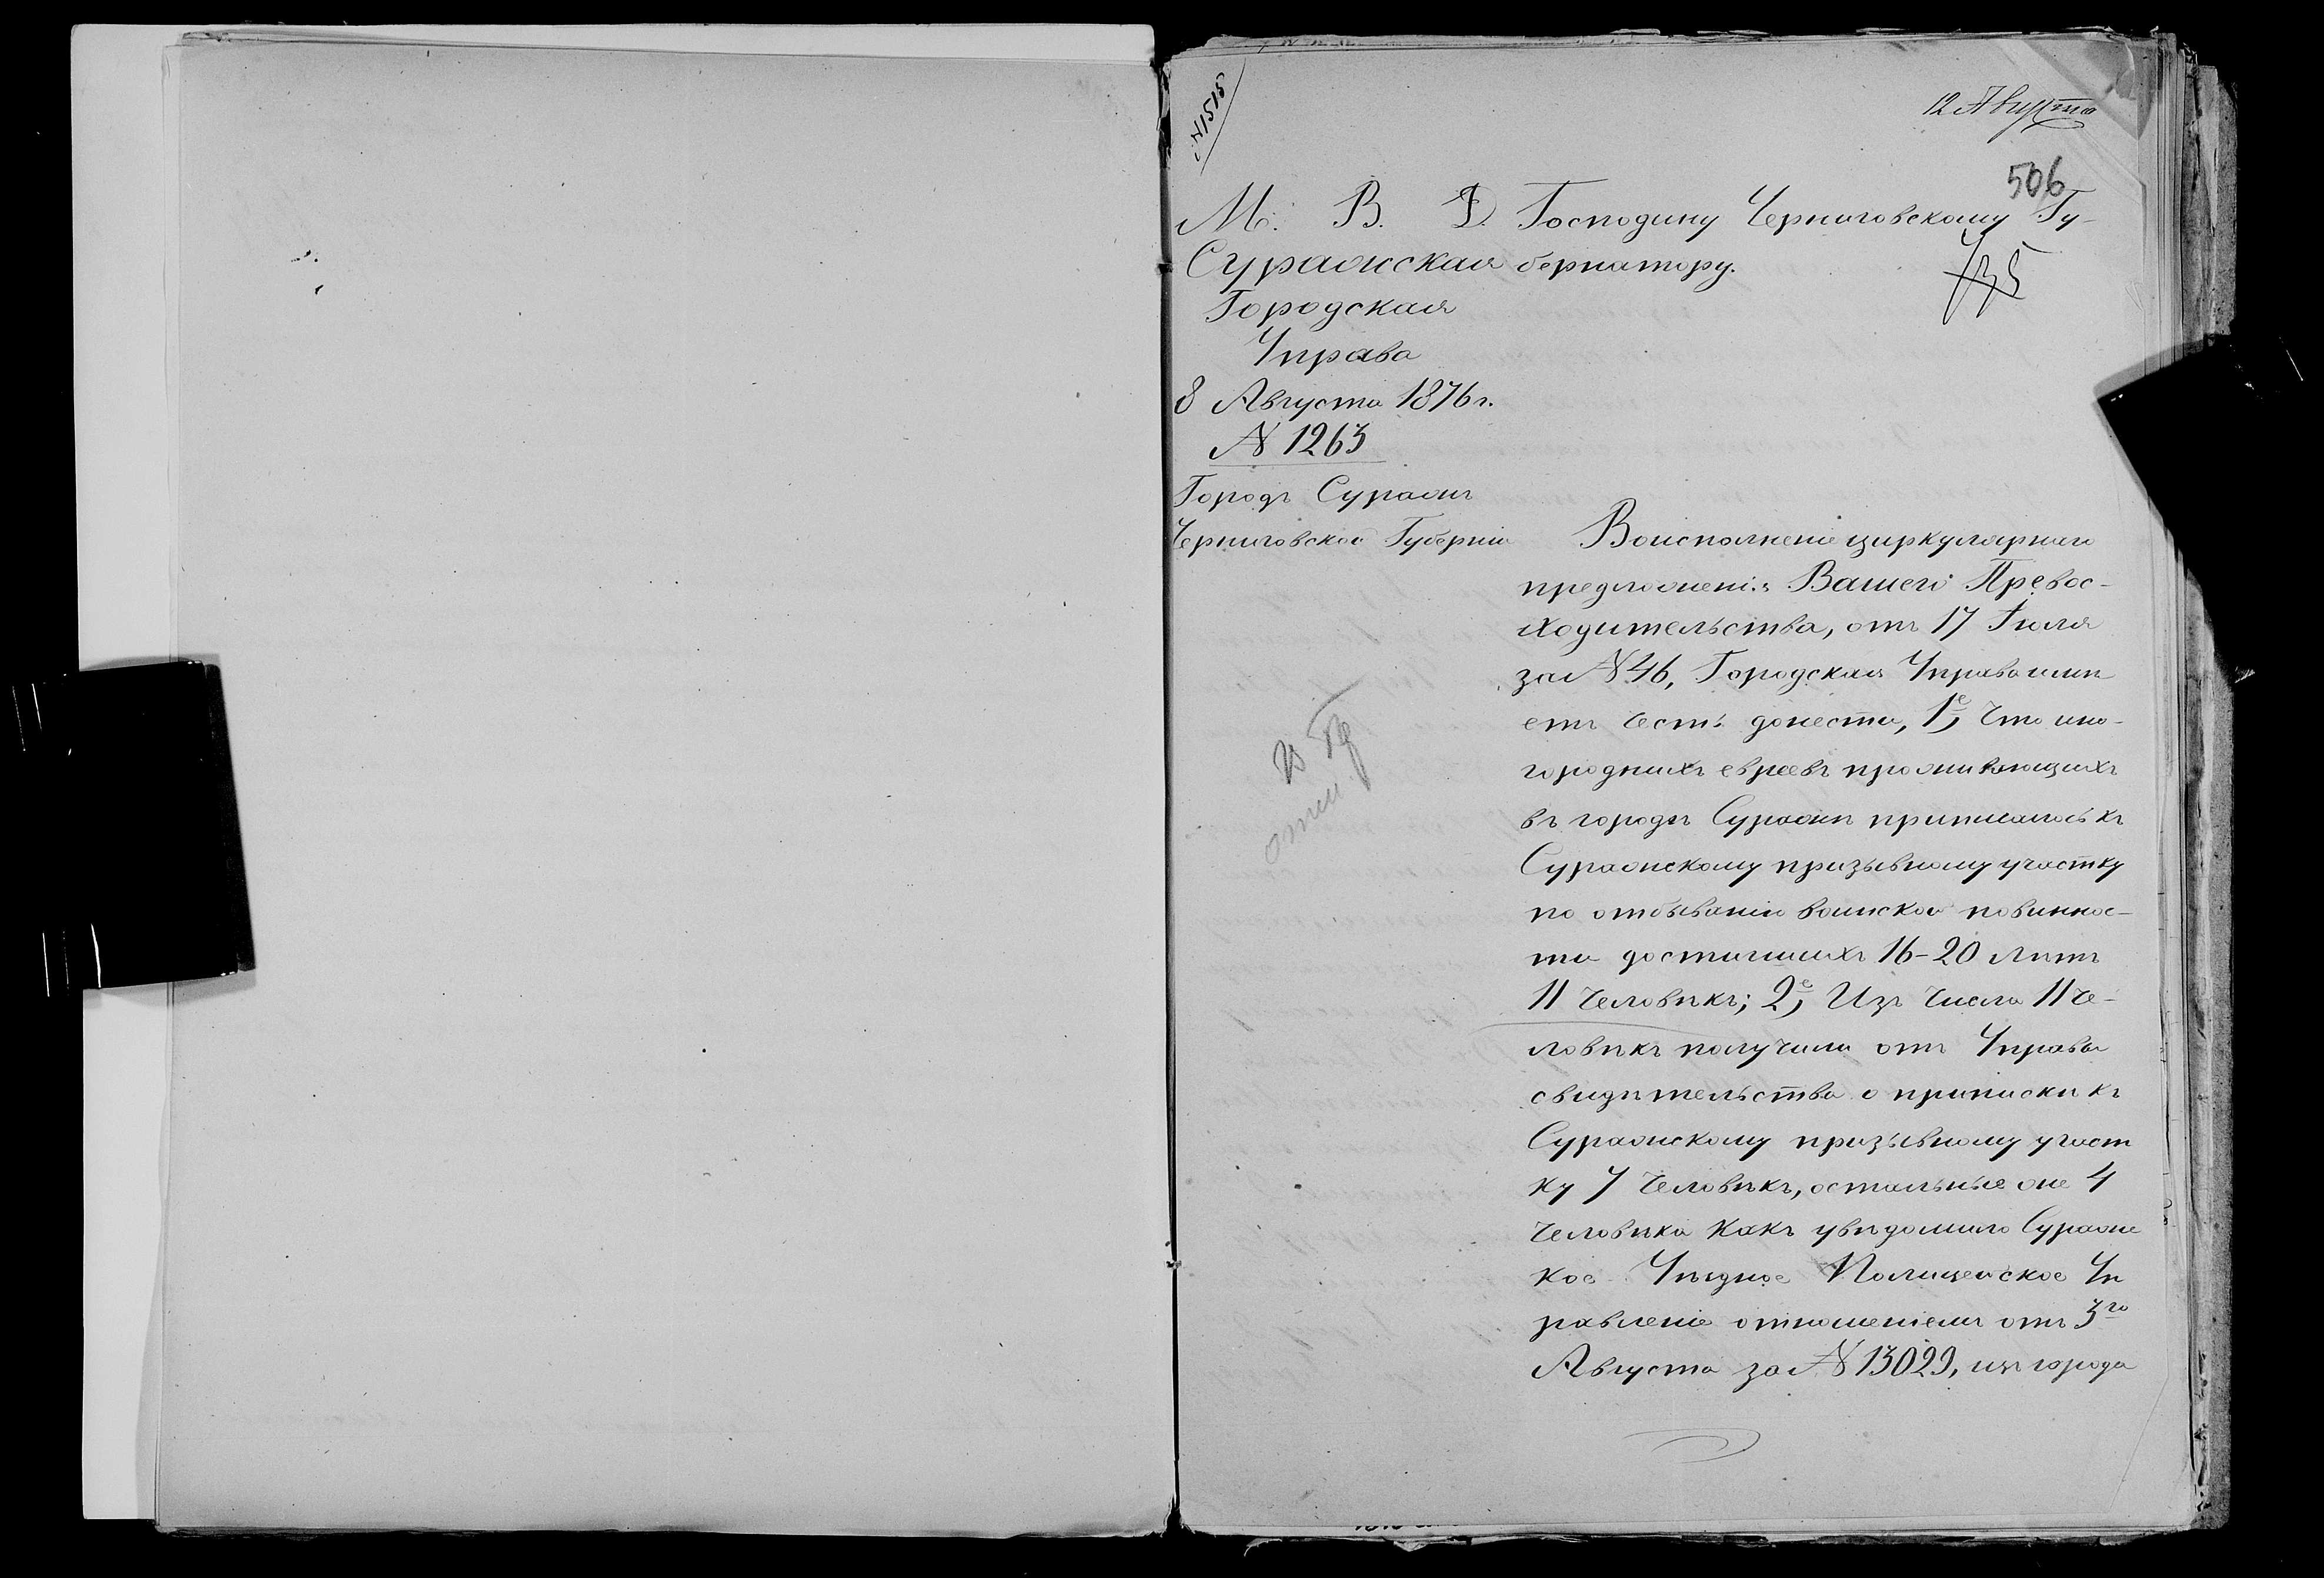 12 Августа
506
М. В. Д.
Суражская
Городская
Управа
8 Августа 1876 г.
№ 1263
Городъ Суражъ
Черниговской Губерніи
Господину Черниговскому Гу-
бернатору.
Воисполненіе циркулярнаго
предложенія Вашего Превос-
ходительства, отъ 17 Іюля
за № 46, Городская Управа имѣ
етъ честь донести, 1е, что ино-
городнихъ евреевъ проживающихъ
въ городѣ Суражѣ приписалось къ
Суражскому призывному участку
по отбыванію воинской повиннос-
ти достигшихъ 16-20 лѣтъ
11 человѣкъ; 2е, Изъ числа 11 че-
ловѣкъ получили отъ Управы
свидѣтельства о припискѣ къ
Суражскому призывному участ
ку 7 человѣкъ, остальные же 4
человѣка какъ увѣдомило Суражс
кое Уѣздное Полицейское Уп
равленіе отношеніемъ отъ 3го
Августа за № 13029, изъ города